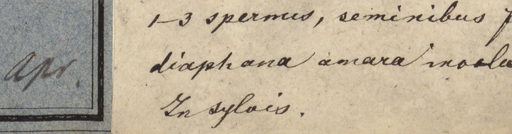 1-3 spermus, seminibus
diaphana amara
Apr.
In sylvis.